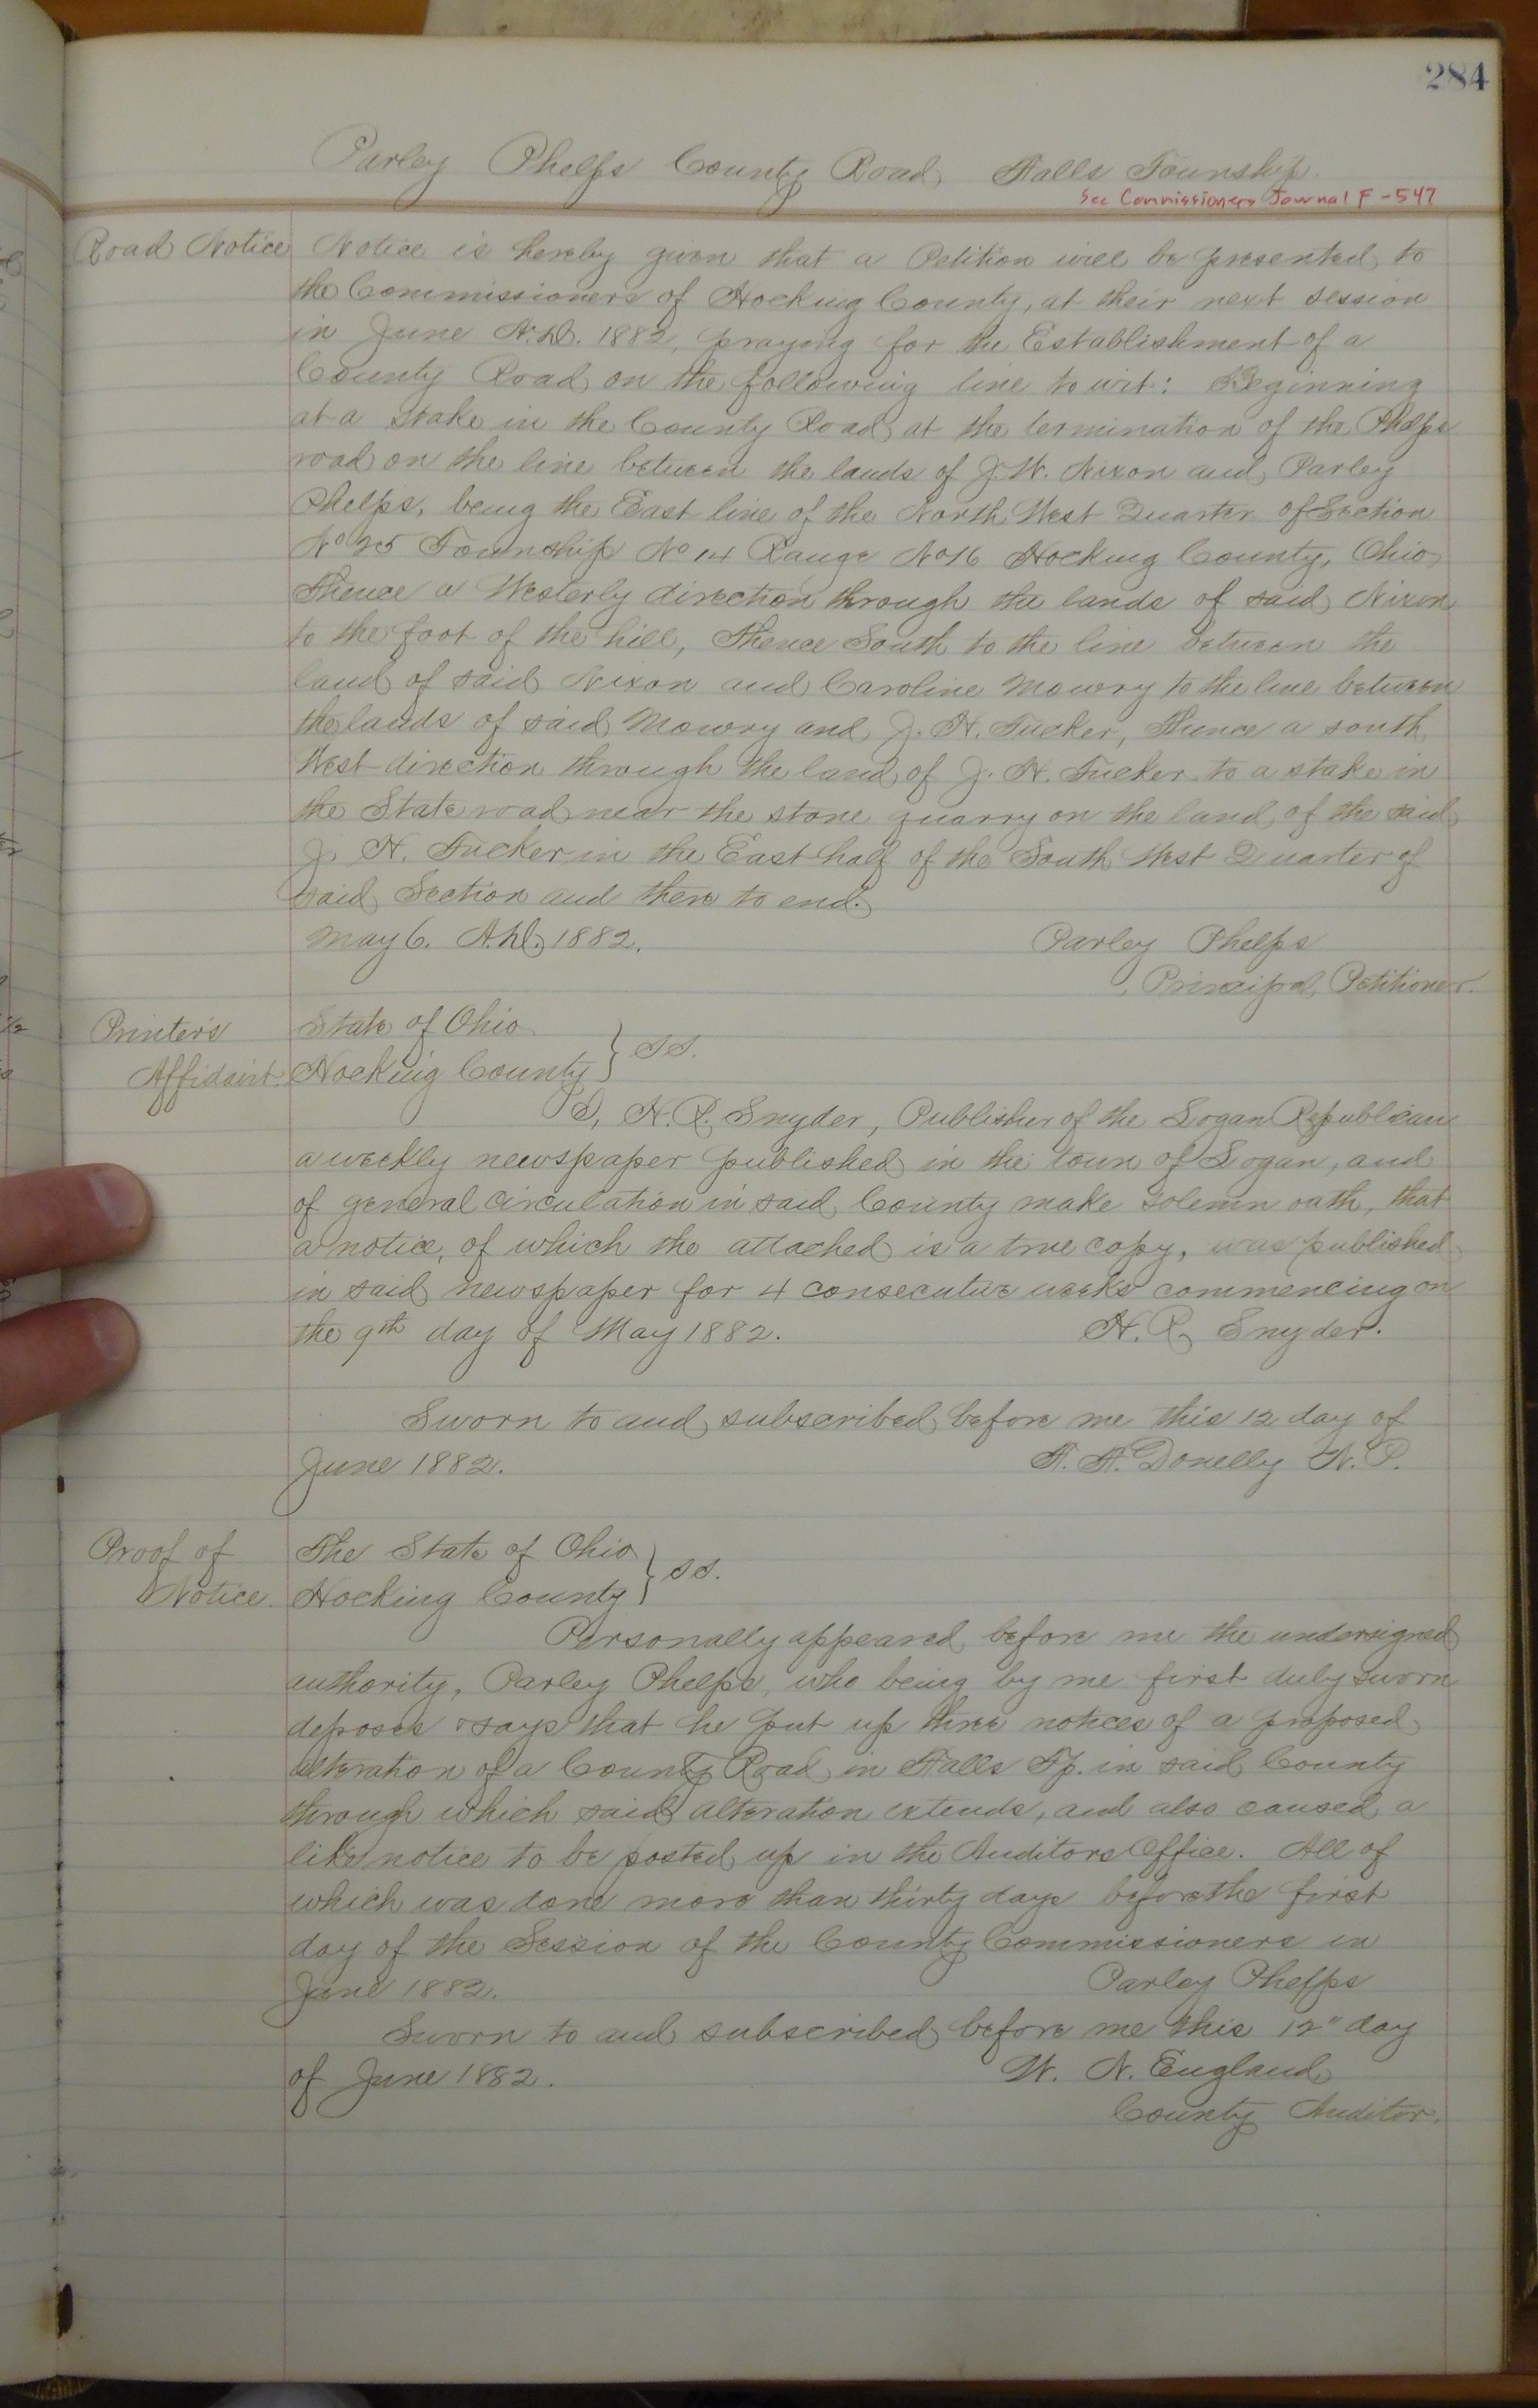 284
Parley Phelps County Road, Falls Township.
See Commissioners Journal F-547
Road Notice
Notice is hereby given that a Petition will be presented to
the Commissioners of Hocking County, at their next session
in June A.D. 1882, praying for the Establishment of a
County Road on the following line to wit: Beginning
at a stake in the County Road at the termination of the Phelps
road on the line between the lands of J. W. Nixon and Parley
Phelps, being the East line of the North West Quarter of Section
No 25 Township No 14 Range No 16 Hocking County, Ohio
Thence a Westerly direction through the lands of said Nixon
to the foot of the hill, Thence South to the line between the
land of said Nixon and Caroline Mowry to the line between
the lands of said Mowry and J. H. Tucker, Thence a south
West direction through the land of J. H. Tucker to a stake in
the State road near the stone quarry on the land of the said
J. H. Tucker in the East half of the South West Quarter of
said Section and there to end.
May 6. A.D. 1882. Parley Phelps
Principal Petitioner.
Printer's
Affidavit.
State of Ohio
Hocking County } SS.
I, H. R. Snyder, Publisher of the Logan Republican
a weekly newspaper published in the town of Logan, and
of general circulation in said County make solemn oath, that
a notice, of which the attached is a true copy, was published
in said newspaper for 4 consecutive weeks commencing on
the 9th day of May 1882. H. R. Snyder.
Sworn to and subscribed before me this 12 day of
June 1882. Donelly N. P.
Proof of
Notice.
The State of Ohio
Hocking County } SS.
Personally appeared before me the undersigned
authority, Parley Phelps, who being by me first duly sworn
deposes & says that he put up three notices of a proposed
alteration of a County Road in Falls Tp. in said County
through which said alteration extends, and also caused a
like notice to be posted up in the Auditors Office. All of
which was done more than thirty days before the first
day of the Session of the County Commissioners in
June 1882. Parley Phelps
Sworn to and subscribed before me this 12" day
of June 1882. W. N. England
County Auditor.